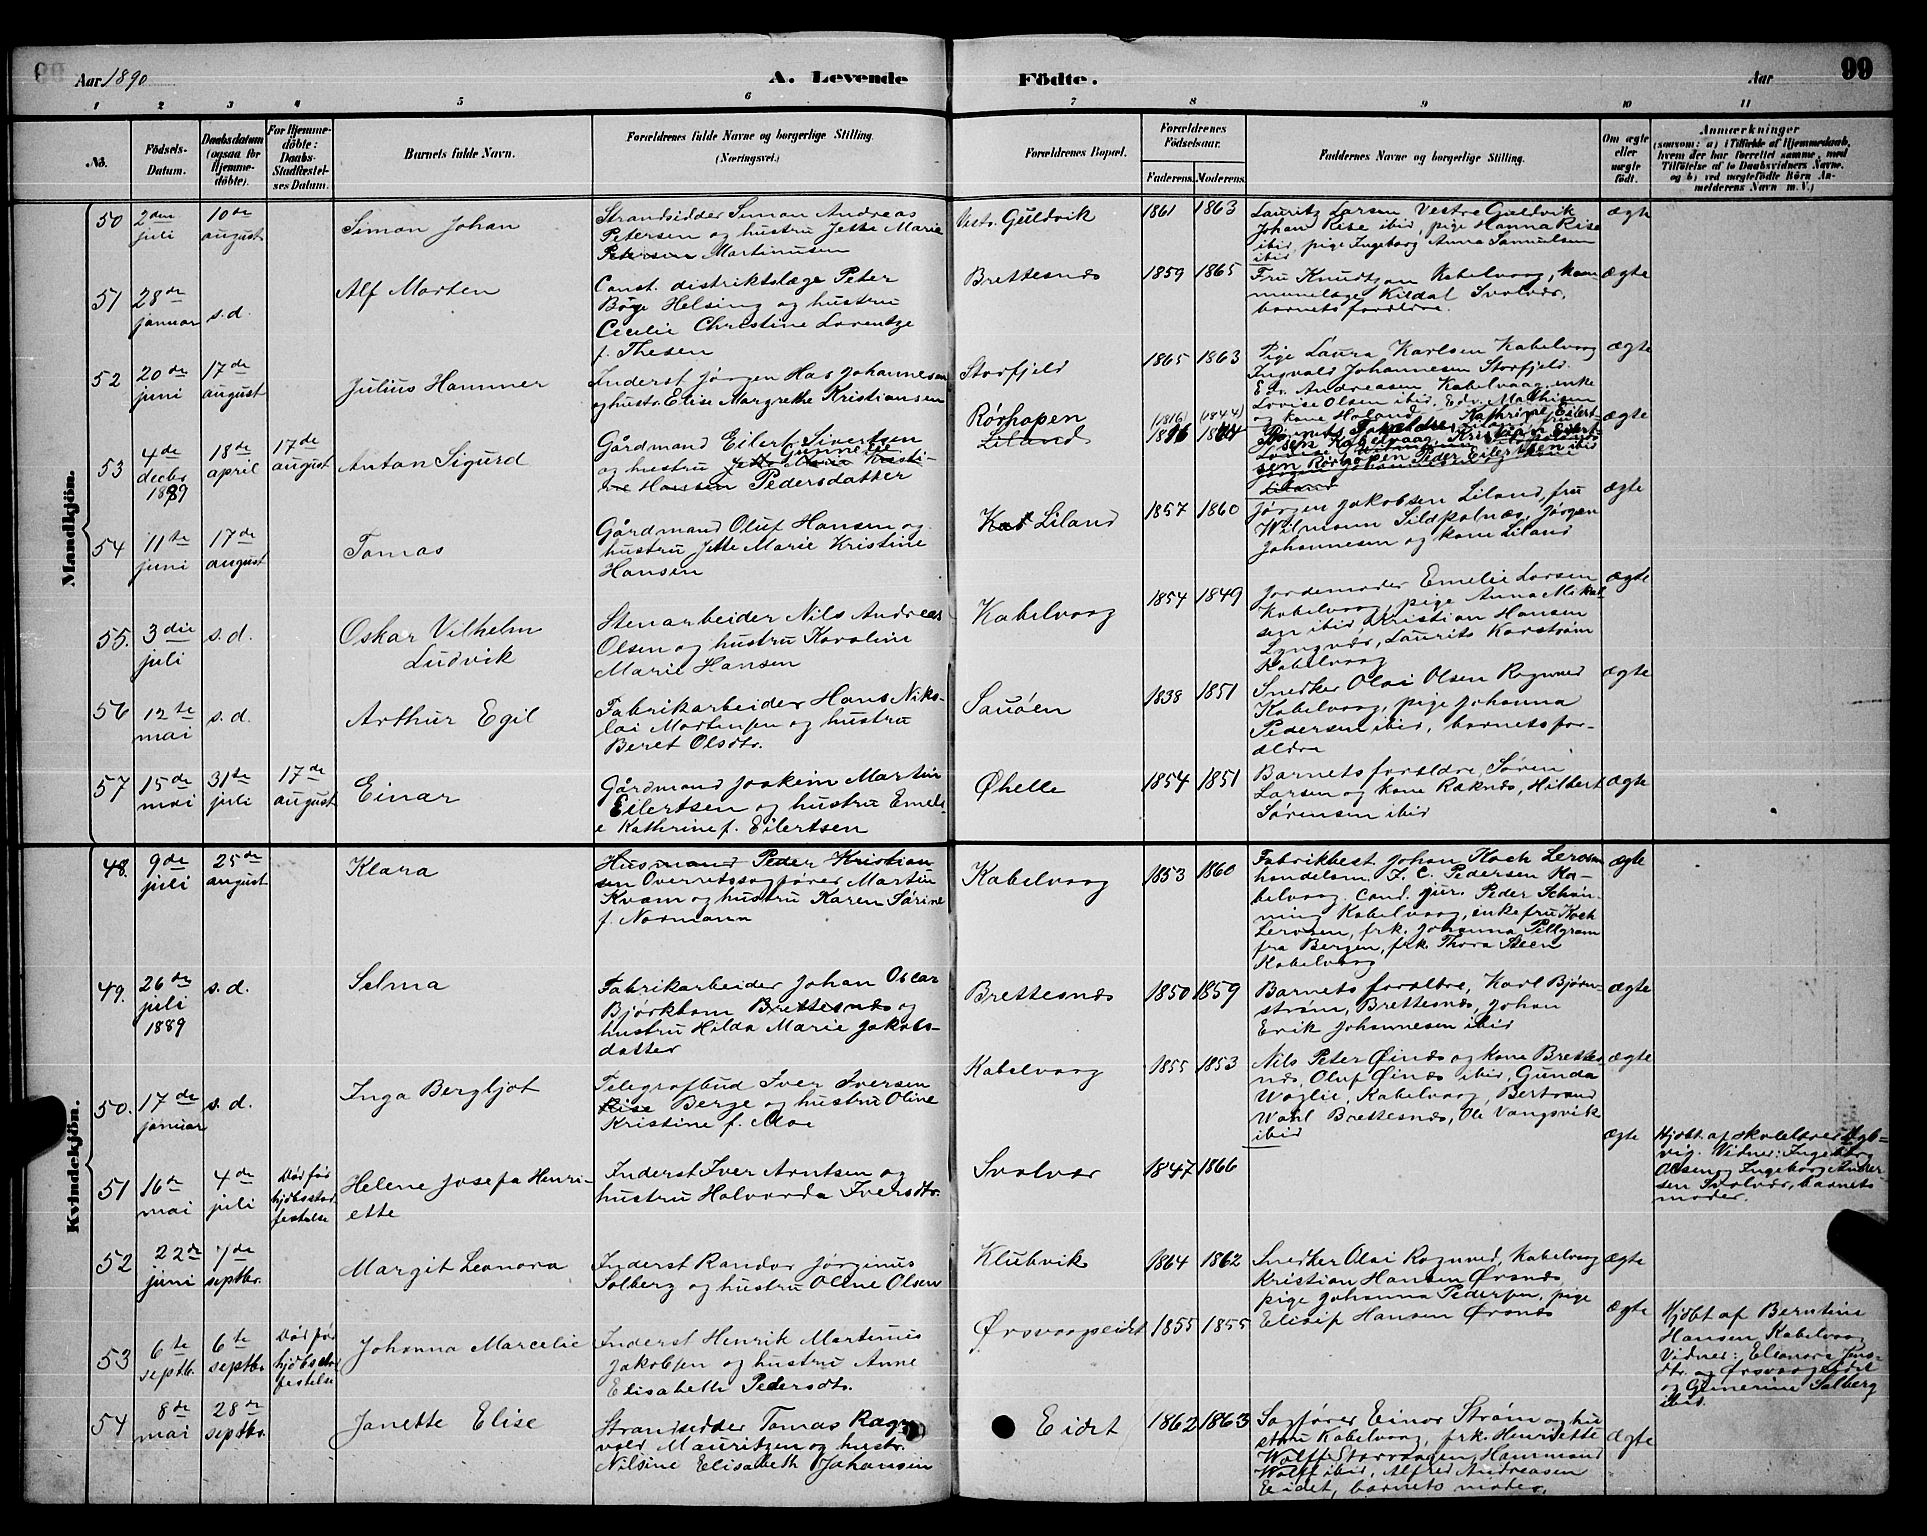 Aar 1890
A. Levende
Födte.
Aar
99
1 2 3 4 5 6 7 8 9 10 11
No.
Födsels-
Datum.
Daabsdatum
(ogsaa for
Hjemme-
döbte).
For Hjemme-
döbte:
Daabs-
Stadfæstel-
ses Datum.
Barnets fulde Navn.
Forældrenes fulde Navne og borgerlige Stilling.
(Næringsvei.)
Forældrenes Bopæl.
Forældrenes
Födselsaar.
Faderens. Moderens.
Faddernes Navne og borgerlige Stilling.
Om ægte
eller
uægte
födt.
Anmærkninger
(saasom: a) i Tilfælde af Hjemmedaab,
hvem der har forrettet samme, med
Tilföielse af to Daabsvidners Navne.
og b) ved uægtefödte Börn An-
melderens Navn m. V.)
Mandkjön.
50
2den
juli
10de
august
Simon Johan
Strandsidder Simon Andreas
Petersen og hustru Jette Marie
Petersen Martinusen
Vestr. Guldvik
1861 1863
Lauritz Larsen Vestre Guldvik
Johan Rise ibid, pige Hanna Rise
ibid, pige Ingeborg Anna Samuelsen
ibid
ægte
51
28de
januar
s.d.
Alf Morten
Const. distriktslæge Peter
Böge Helsing og hustru
Cecilie Christine Lorentze
f. Thesen
Brettesnæs
1859 1865
Fru Knudtzon Kabelvaag, kom
munelæge Kildal Svolvær,
barnets forældre.
ægte
52
20de
juni
17de
august
Julius Hammer
Inderst Jörgen Has Johannesen
og hustr. Elise Margrethe Kristiansen
Storfjeld
1865 1863
Pige Laura Karlsen Kabelvaag
Ingvald Johannesen Storfjeld.
Edv. Andreasen Kabelvaag, enke
Lovise Olsen ibid, Edv. Mathisen
og kone Holand
ægte
53
4de
decbr
1889
18de
april
17de
august
Anton Sigurd
Gårdmand Eilert Sivertsen
og hustru Gunnelie
Hansen Pedersdatter
Rörhopen
Liland
(1816) (1844)
Kathrine Eilert-
sen Kabelvaag, Kristian Eilert-
sen Rörhopen Peder Eilertsen ibid
Liland
ægte
54
11te
juni
17de
august
Tomas
Gårdmand Oluf Hansen og
hustru Jette Marie Kristine
Hansen
Liland
1857 1860
Jörgen Jakobsen Liland, fru
Wilmann Sildpolnæs, Jörgen
Johannesen og kone Liland
ægte
55.
3die
juli
s.d.
Oskar Vilhelm
Ludvik
Stenarbeider Nils Andreas
Olsen og hustru Karoline
Marie Hansen
Kabelvaag
1854 1849
Jordemoder Emelie Larsen
Kabelvaag, pige Anna Mikal-
sen ibid, Kristian Hansen
Lyngvær, Laurits Karström
Kabelvaag
ægte
56
12te
mai
s.d.
Arthur Egil
Fabrikarbeider Hans Niko-
lai Mortensen og hustru
Beret Olsdtr.
Sauöen
1838 1851
Snedker Olai Olsen Rognved
Kabelvaag, pige Johanna
Pedersen ibid, barnets for-
ældre
ægte
57
15de
mai
31te
juli
17de
august
Einar
Gårdmand Joakim Martin
Eilertsen og hustru Emeli-
e Kathrine f. Eilertsen
Øhelle
1854 1851
Barnets forældre, Sören
Larsen og kone Raknæs, Hilbert
Sörensen ibid
ægte
Kvindekjön.
48.
9de
juli
25de
august
Klara
Husmand Peder Kristian
sen Overretssagförer Martin
Kvam og hustru Karen Sörine
f. Normann
Kabelvaag
1853 1860
Fabrikbest. Johan Koch Lerosen
handelsm. J. C. Pedersen Ka-
belvaag. Cand. jur. Peder Schön-
ning Kabelvaag, enkefru Koch
Lerosen, frk. Johanna Pillgram
fra Bergen, frk. Thora Steen
Kabelvaag
ægte
49.
26de
juli
1889
s.d.
Selma
Fabrikarbeider Johan Oscar
Björkbom Brettesnæs og
hustru Hilda Marie Jakobs-
datter
Brettesnæs
1850 1859
Barnets forældre, Karl Björn-
ström, Brettesnæs, Johan
Erik Johannesen ibid
ægte
50.
17de
januar
s.d.
Inga Bergljot
Telegrafbud Iver Iversen
Rise Berge og hustru Oline
Kristine f. Moe
Kabelvaag
1855 1853
Nils Peter Øinæs og kone Brettes
næs, Oluf Øinæs ibid, Gunda
Waglie, Kabelvaag, Bertrand
Wahl Brettesnæs, Ole Vangsvik
ibid
ægte
51
16de
mai
4de
juli
Död för
hjdbsstad
festelse
Helene Josefa Henri-
ette
Inderst Iver Arntsen og
hustru Halvarda Iversdtr.
Svolvær
1847 1866
ægte
Hjdbt. af skolelærer
vig. Vidner: Ingeborg
Olsen og Ingeborg Ander
sen Svolvær, barnets
moder.
52
22de
juni
7de
septbr.
Margit Leonora
Inderst Randor Jörginus
Solberg og hustru Oline Olsen
Klubvik
1864 1862
Snedker Olai Rognved, Kabelvaag
Kristian Hansen Ørsnæs,
pige Johanna Pedersen, pige
Elisif Hansen Ørsnæs
ægte
53
6te
septb.
6te
septbr.
Död för
hjdbsstad
festelse
Johanna Marcelie
Inderst Henrik Martinus
Jakobsen og hustru Anne
Elisabeth Pedersdtr.
Ørsvaagseidet
1855 1855
ægte
Hjdbt af Berntine
Hansen Kabelvaag
Vidner: Eleonora Jens-
dtr. og Ørsvaagseidet
og Gunerine Solberg
ibid.
54
8de
mai
28de
septbr.
Janette Elise
Strandsidder Tomas Ragn
vald Mauritzen og hustr.
Nilsine Elisabeth Johansen
Eidet
1862 1863
Sagförer Einar Ström og hu
stru Kabelvaag, frk. Henriette
Wolff Storvaagen, Hammond
Wolff ibid, Alfred Andreasen
Eidet, barnets moder.
ægte